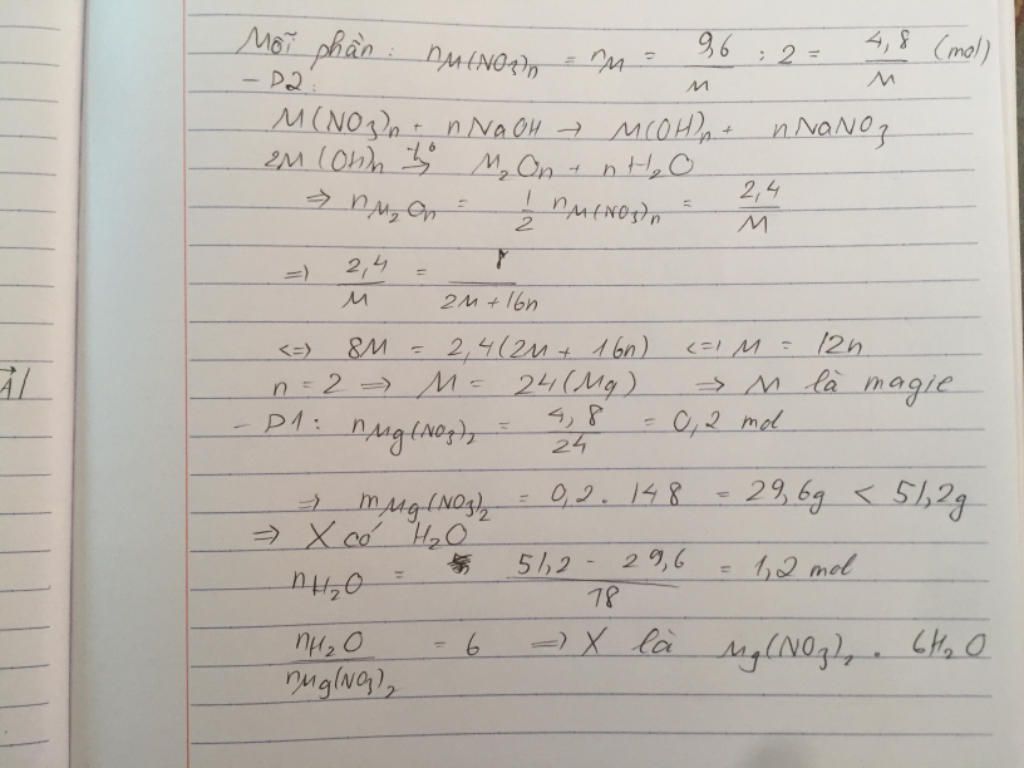 Mỗi phần: nM(NO3)n = nM = 9,6/M : 2 = 4,8/M (mol)
- D2:
M(NO3)n + nNaOH → M(OH)n + nNaNO3
2M(OH)n t°→ M2On + nH2O
⇒ nM2On = 1/2 nM(NO3)n = 2,4/M
⇒ 2,4/M = 8/(2M + 16n)
<=> 8M = 2,4(2M + 16n) <=> M = 12n
n = 2 ⇒ M = 24(Mg) ⇒ M là magie
- D1: nMg(NO3)2 = 4,8/24 = 0,2 mol
⇒ mMg(NO3)2 = 0,2 . 148 = 29,6g < 51,2g
⇒ X có H2O
nH2O = (51,2 - 29,6)/18 = 1,2 mol
nH2O/nMg(NO3)2 = 6 ⇒ X là Mg(NO3)2 . 6H2O